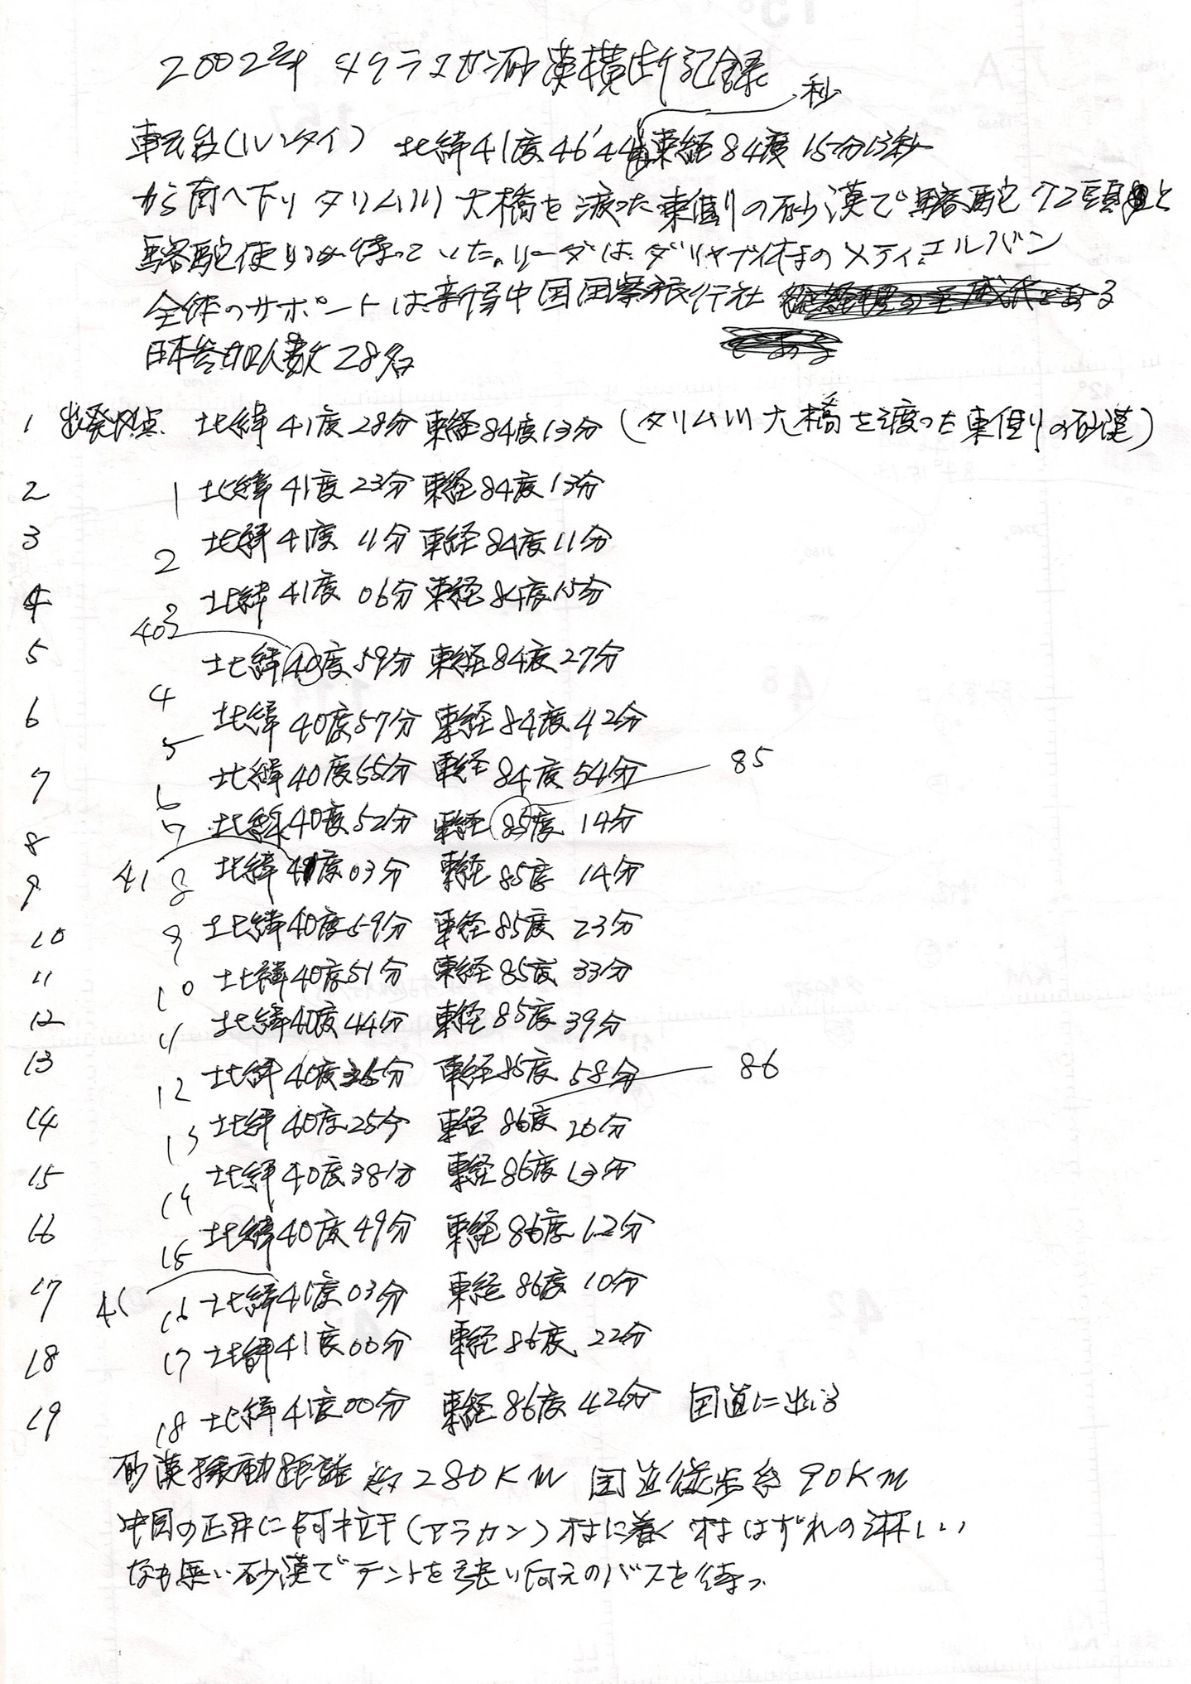 2002年 タクラマカン砂漠横断記録
秒
輪台(ルンタイ) 北緯41度46'44 東経84度15分13秒
から南へ下り タリム川大橋を渡った東側の砂漠で駱駝72頭と
駱駝使いが待っていた。リーダは、ダリヤブイ村のメティエルバン
全体のサポートは、新疆中国国際旅行社
日本参加人数28名
1 出発地点 北緯41度28分 東経84度13分 (タリム川大橋を渡った東側の砂漠)
2 1 北緯41度23分 東経84度13分
3 2 北緯41度11分 東経84度11分
4 3 北緯41度06分 東経84度15分
40
5 4 北緯40度59分 東経84度27分
6 5 北緯40度57分 東経84度42分
7 6 北緯40度55分 東経84度54分 85
8 7 北緯40度52分 東経85度14分
9 41 8 北緯41度03分 東経85度14分
10 9 北緯40度59分 東経85度23分
11 10 北緯40度51分 東経85度33分
12 11 北緯40度44分 東経85度39分
13 12 北緯40度35分 東経85度58分 86
14 13 北緯40度25分 東経86度20分
15 14 北緯40度38分 東経86度13分
16 15 北緯40度49分 東経86度12分
17 41 16 北緯41度03分 東経86度10分
18 17 北緯41度00分 東経86度22分
19 18 北緯41度00分 東経86度42分 国道に出る
砂漠移動距離 約280KM 国道徒歩 90KM
中国の正月に阿拉干(アラカン)村に着く 村はずれの淋しい
なも無い砂漠でテントを張り迎えのバスを待つ